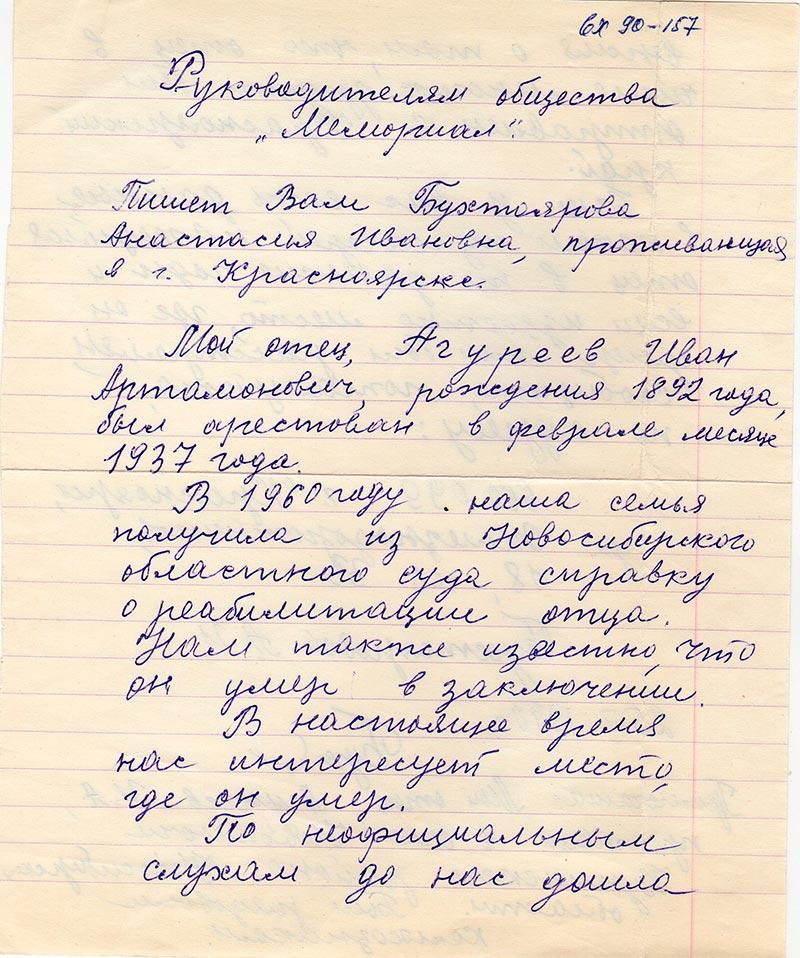 вх 90-157
Руководителям общества
„Мемориал".
Пишет Вам Бухтоярова
Анастасия Ивановна, проживающая
в г. Красноярске.
Мой отец, Агуреев Иван
Артамонович, рождения 1892 года,
был арестован в феврале месяце
1937 года.
В 1960 году наша семья
получила из Новосибирского
областного суда справку
о реабилитации отца.
Нам также известно, что
он умер в заключении.
В настоящее время
нас интересует место,
где он умер.
По неофициальным
слухам до нас дошла